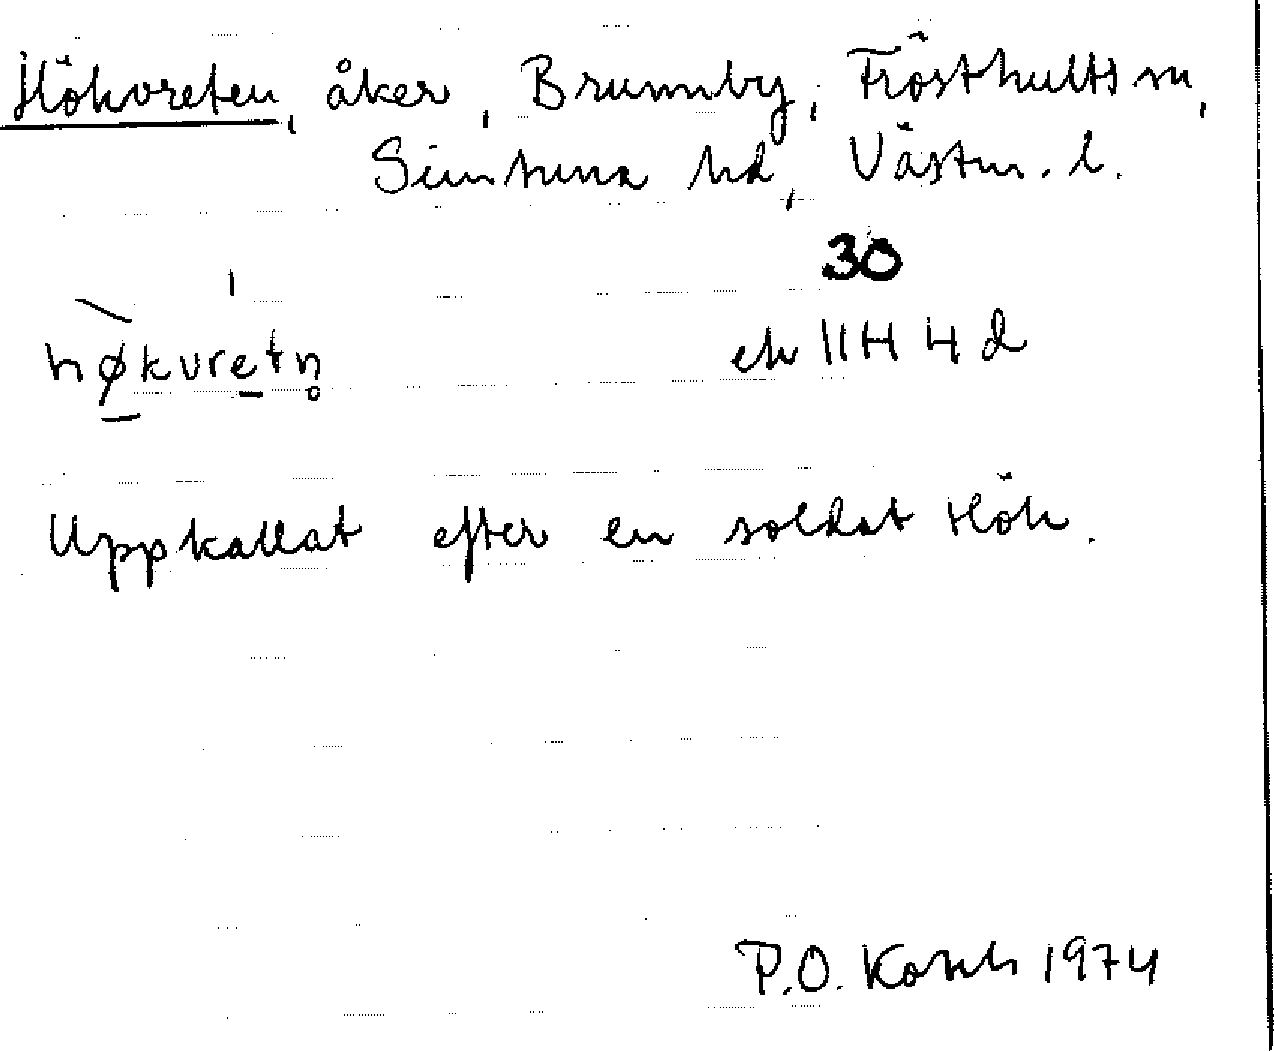 Hökvreten, åker, Brunnby, Frösthults sn,
Simtuna hd, Västm. l.
30
høkvretn̥
ek 11H 4d
Uppkallat efter en soldat Hök.
P.O. 1974